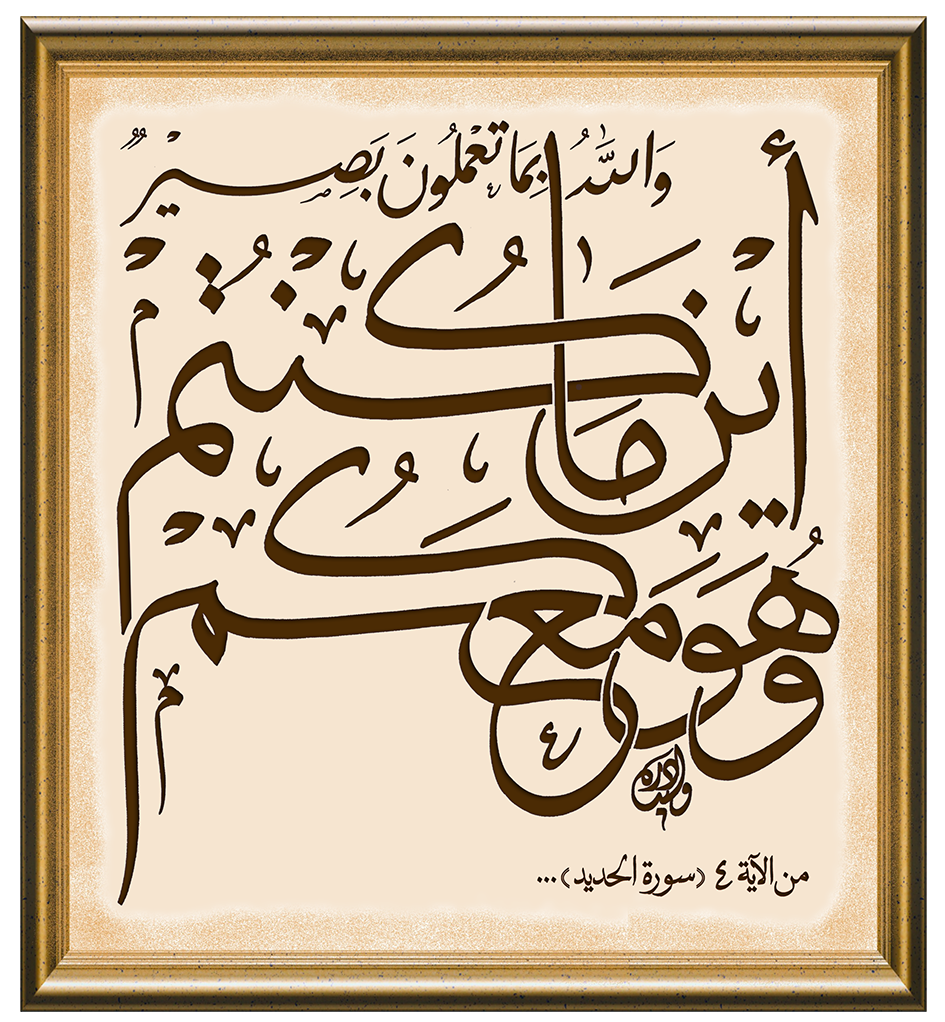 وَهُوَ مَعَكُمْ
أَيْنَ مَا كُنْتُمْ
وَاللَّهُ بِمَا تَعْمَلُونَ بَصِيْرٌ
من الآية ٤ (سورة الحديد)...